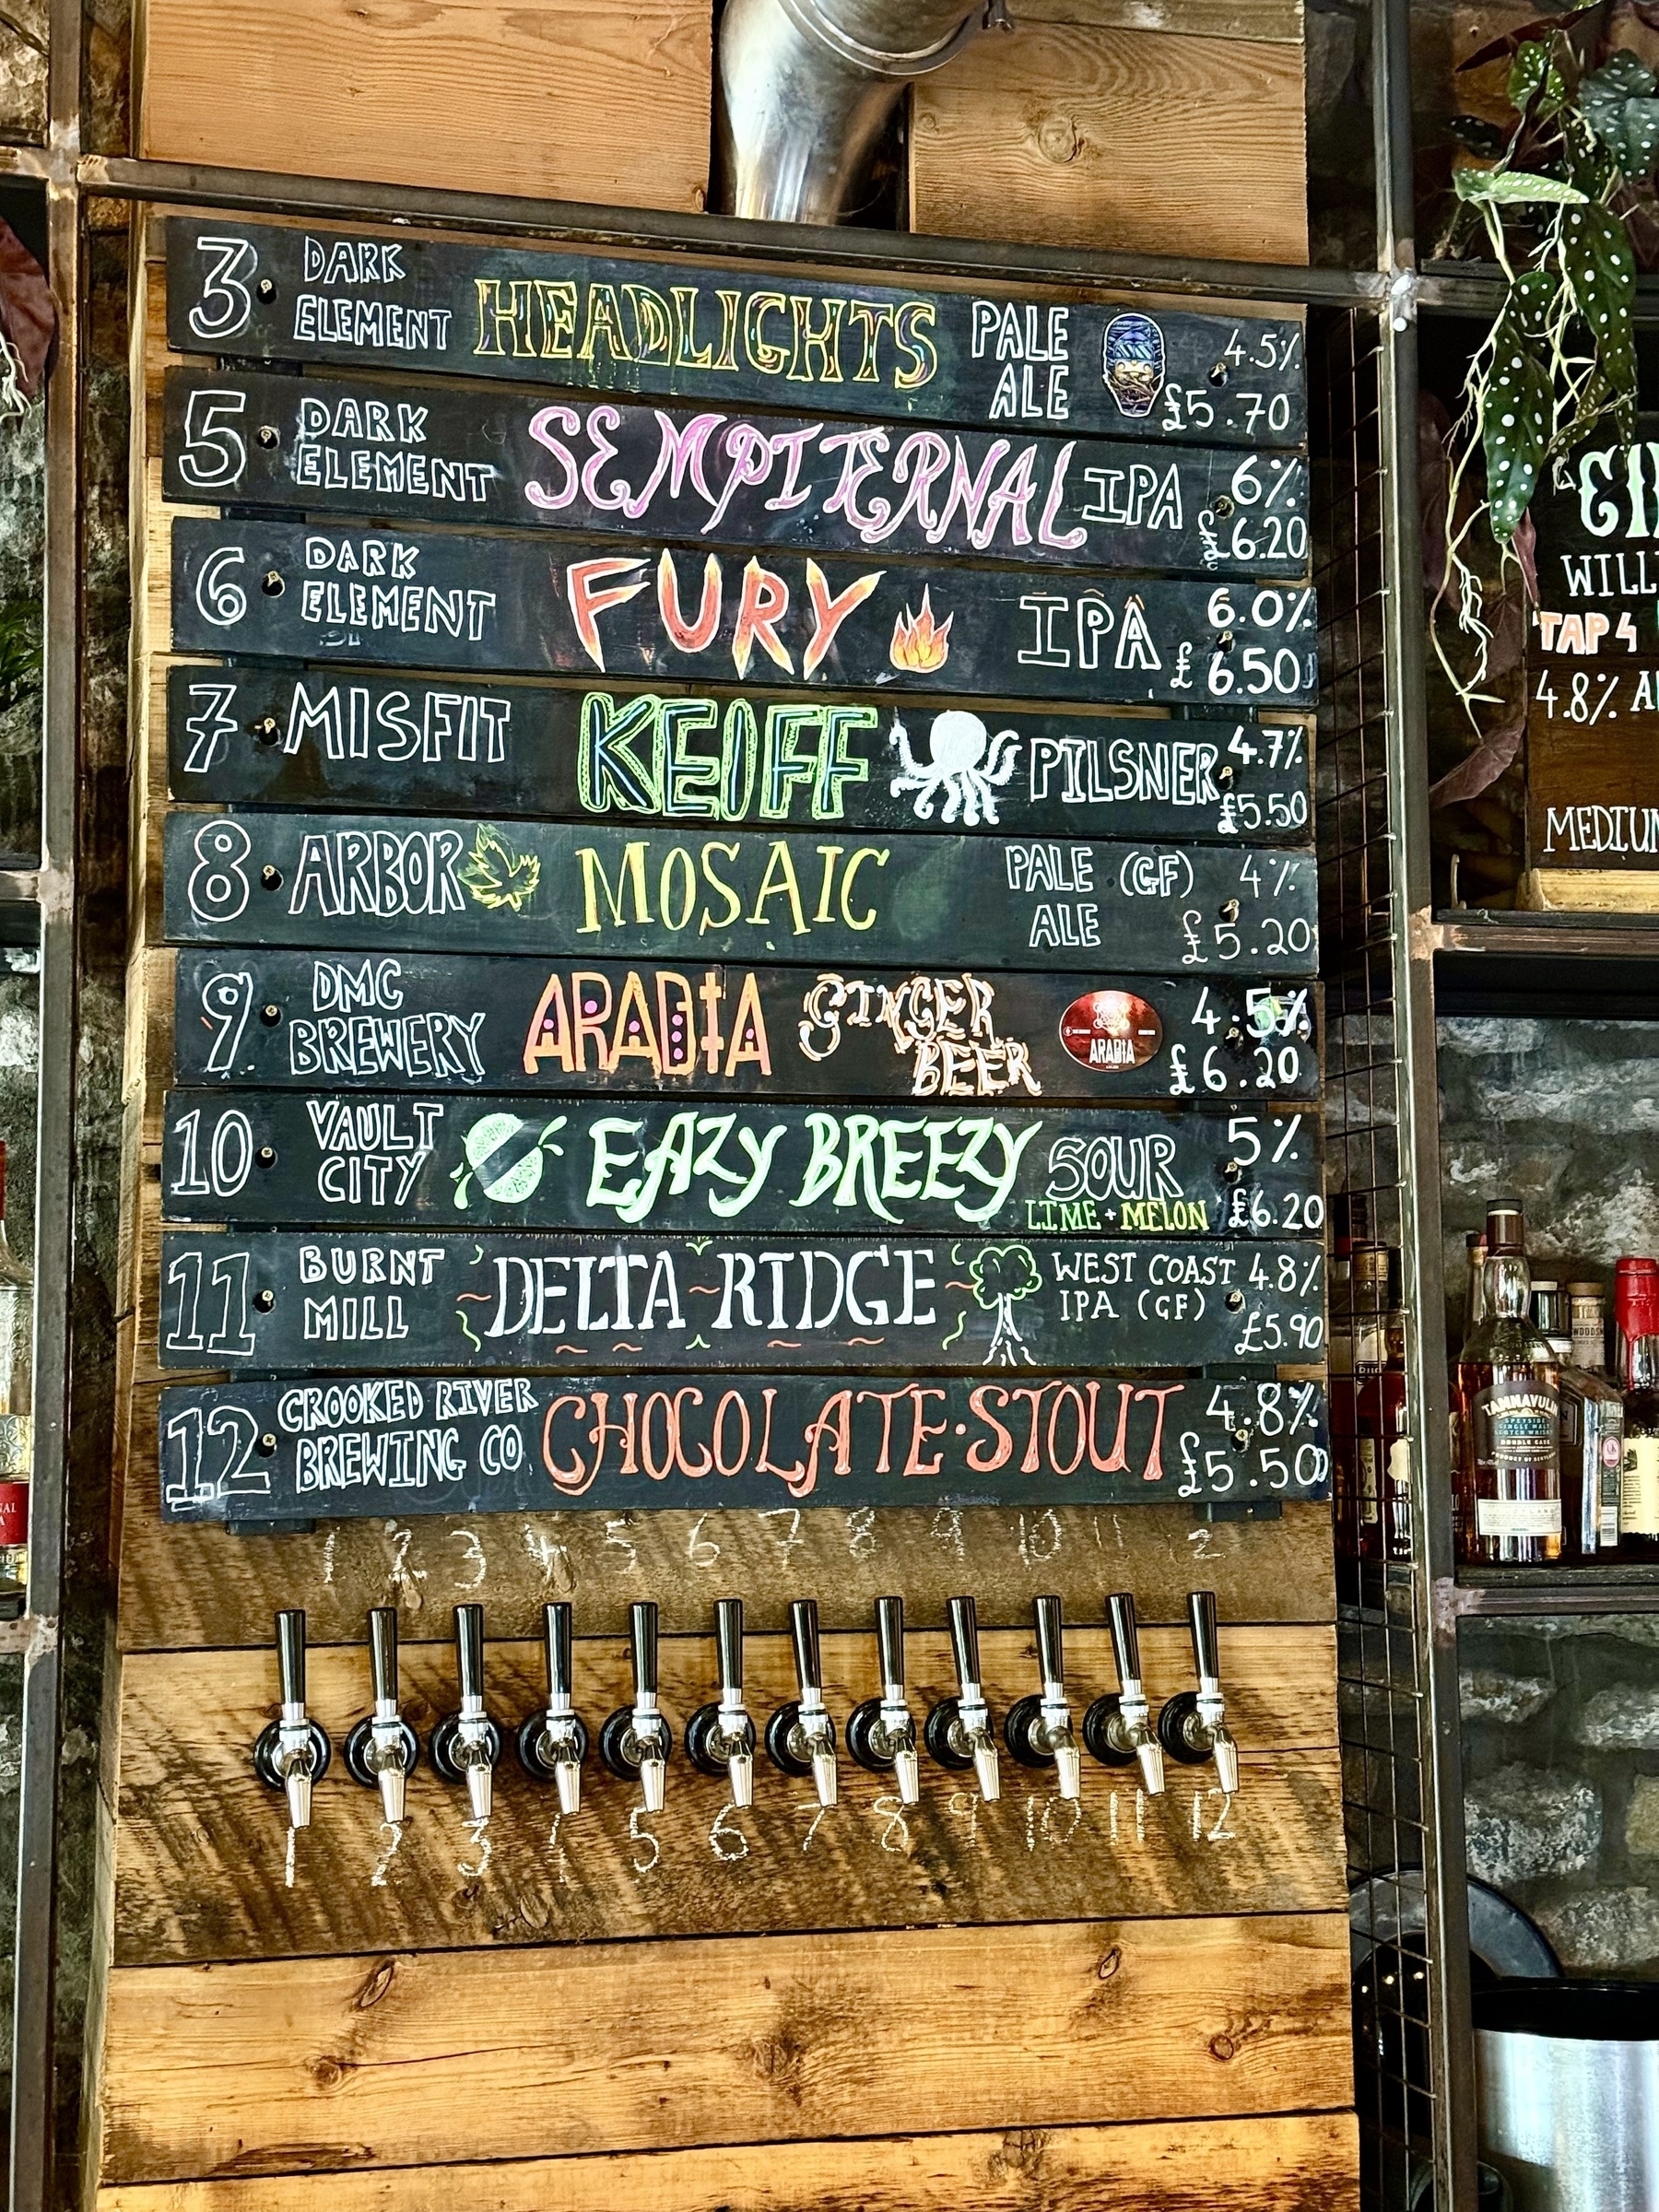 3 DARK ELEMENT HEADLIGHTS PALE ALE 4.5% £5.70
5 DARK ELEMENT SEMPITERNAL IPA 6% £6.20
6 DARK ELEMENT FURY IPA 6.0% £6.50
7 MISFIT KEIFF PILSNER 4.7% £5.50
8 ARBOR MOSAIC PALE ALE (GF) 4% £5.20
9 DMC BREWERY ARADIA GINGER BEER ARADIA 4.5% £6.20
10 VAULT CITY EAZY BREEZY SOUR LIME + MELON 5% £6.20
11 BURNT MILL DELTA RIDGE WEST COAST IPA (GF) 4.8% £5.90
12 CROOKED RIVER BREWING CO CHOCOLATE · STOUT 4.8% £5.50
1 2 3 4 5 6 7 8 9 10 11 12
1 2 3 4 5 6 7 8 9 10 11 12
WILL
TAP 4
4.8%
MEDIUM
TAMNAVULIN
SPEYSIDE
SINGLE MALT
SCOTCH WHISKY
DOUBLE CASK